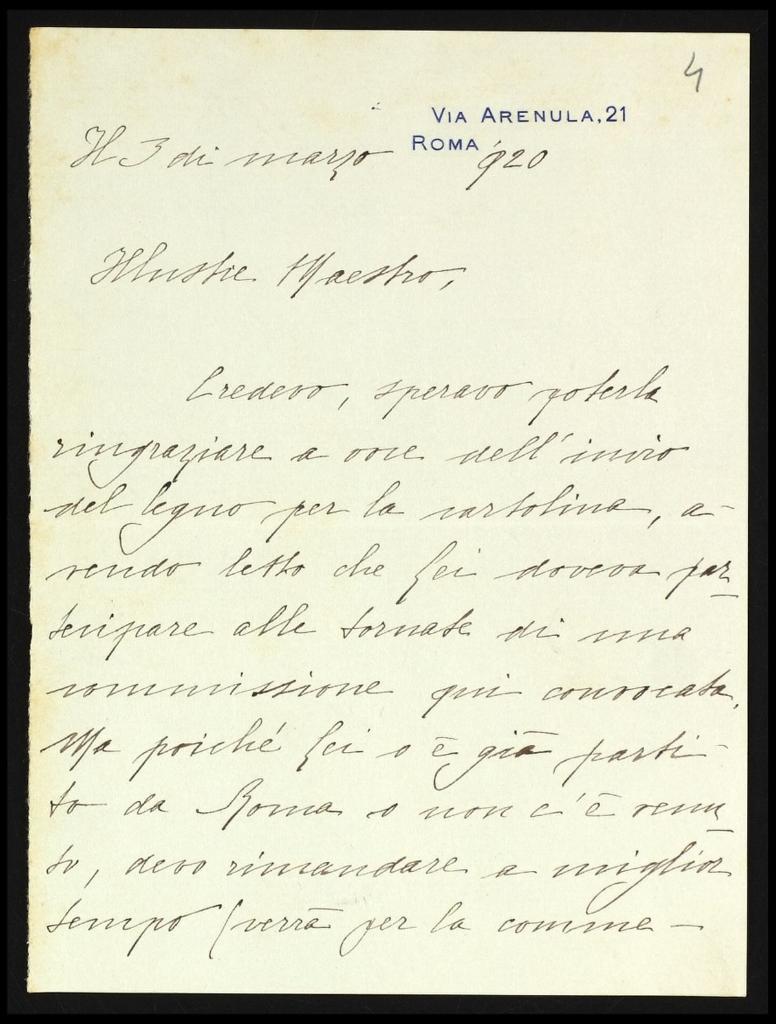 4
VIA ARENULA, 21
ROMA
Il 3 di marzo 920
Illustre Maestro,
Credevo, speravo poterla
ringraziare a voce dell'invio
del legno per la cartolina, a-
vendo letto che Lei doveva par-
tecipare alle tornate di una
commissione qui convocata.
Ma poiché Lei o è già parti-
to da Roma o non c'è venu-
to, devo rimandare a miglior
tempo (verrà per la comme-